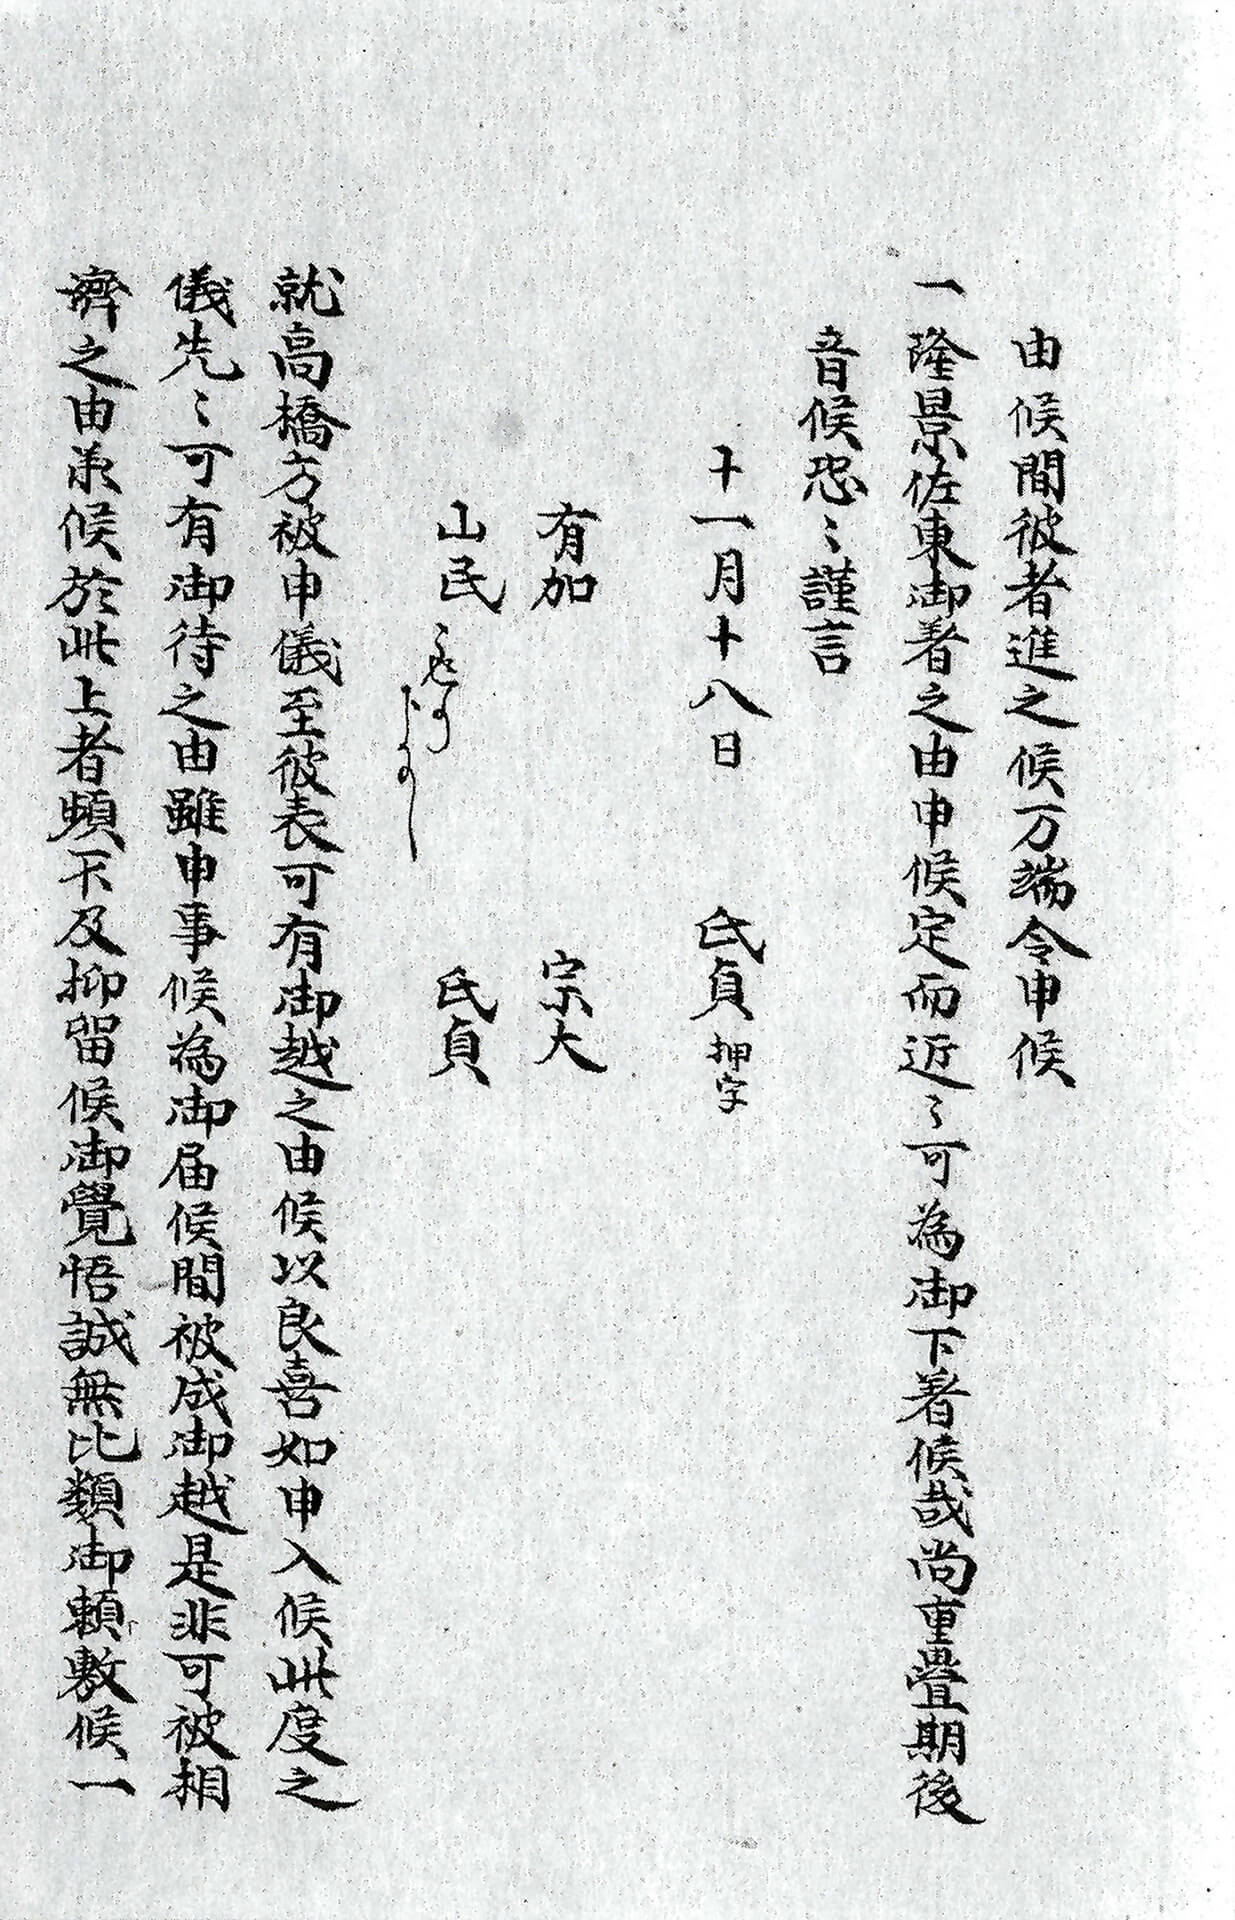 由候間彼者進之候万端令申候
一隆景佐東御着之由申候定而近〻可為御下着候哉尚重疊期後
音候恐〻謹言
十一月十八日　氏貞押字
有加　宗大
山民　氏貞
就高橋方被申儀至彼表可有御越之由候以良喜如申入候此度之
儀先〻可有御待之由雖申事候為御届候間被成御越是非可被相
濟之由承候於此上者頓不及抑留候御覺悟誠無比類御頼敷候一